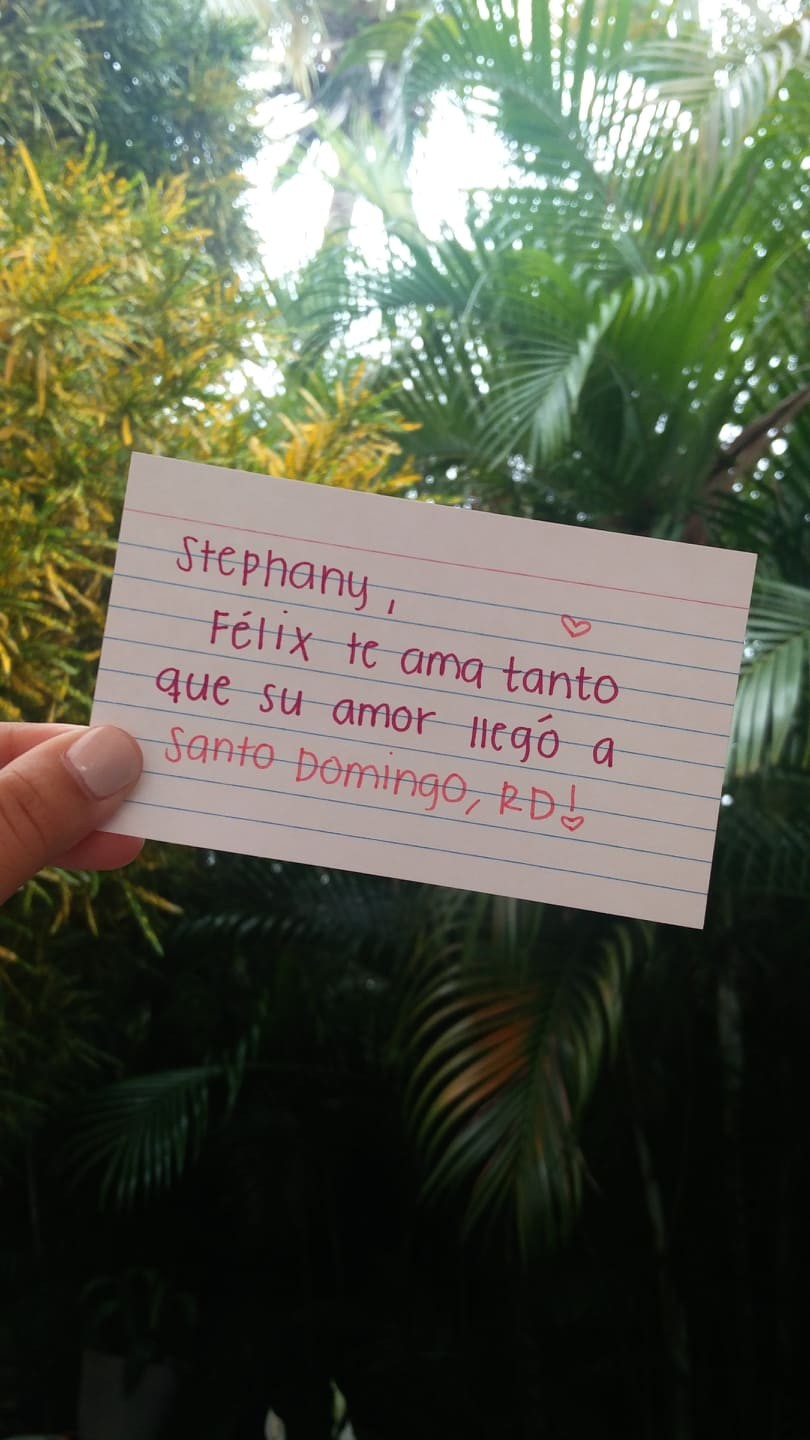 Stephany,
Félix te ama tanto
que su amor llegó a
Santo Domingo, RD!